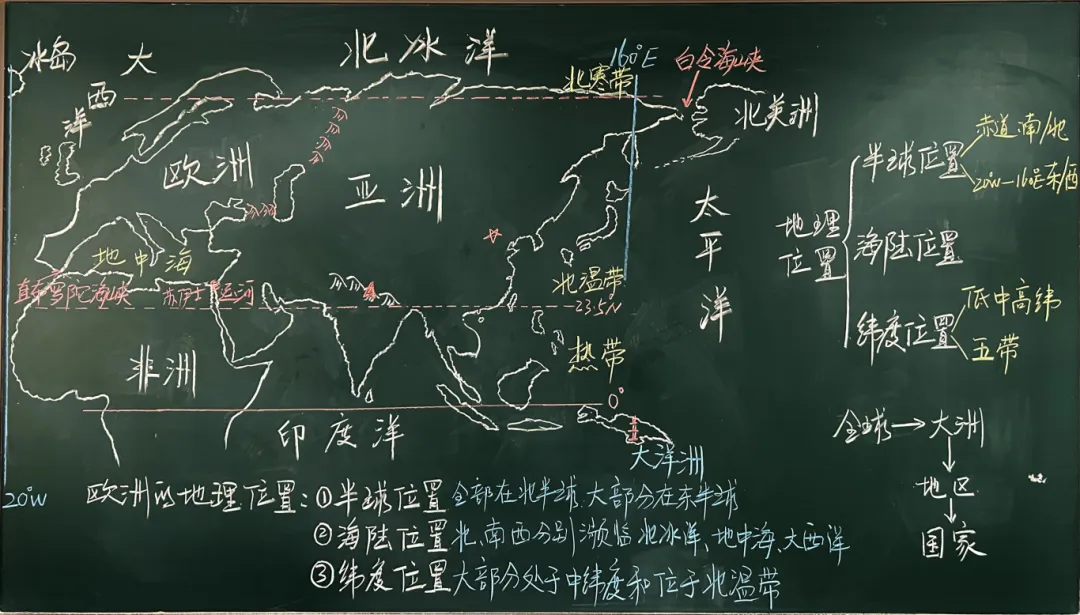 冰岛
大
西
洋
北冰洋
160°E
白令海峡
北寒带
北美洲
欧洲
亚洲
太
平
洋
地中海
直布罗陀海峡
苏伊士运河
北温带
23.5°N
非洲
热带
0°
印度洋
大洋洲
20°W
地理
位置
半球位置
赤道南/北
20°W—160°E东/西
海陆位置
纬度位置
低中高纬
五带
全球→大洲
地区
国家
欧洲的地理位置:①半球位置 全部在北半球.大部分在东半球
②海陆位置 北、南西分别濒临北冰洋、地中海、大西洋
③纬度位置 大部分处于中纬度和位于北温带